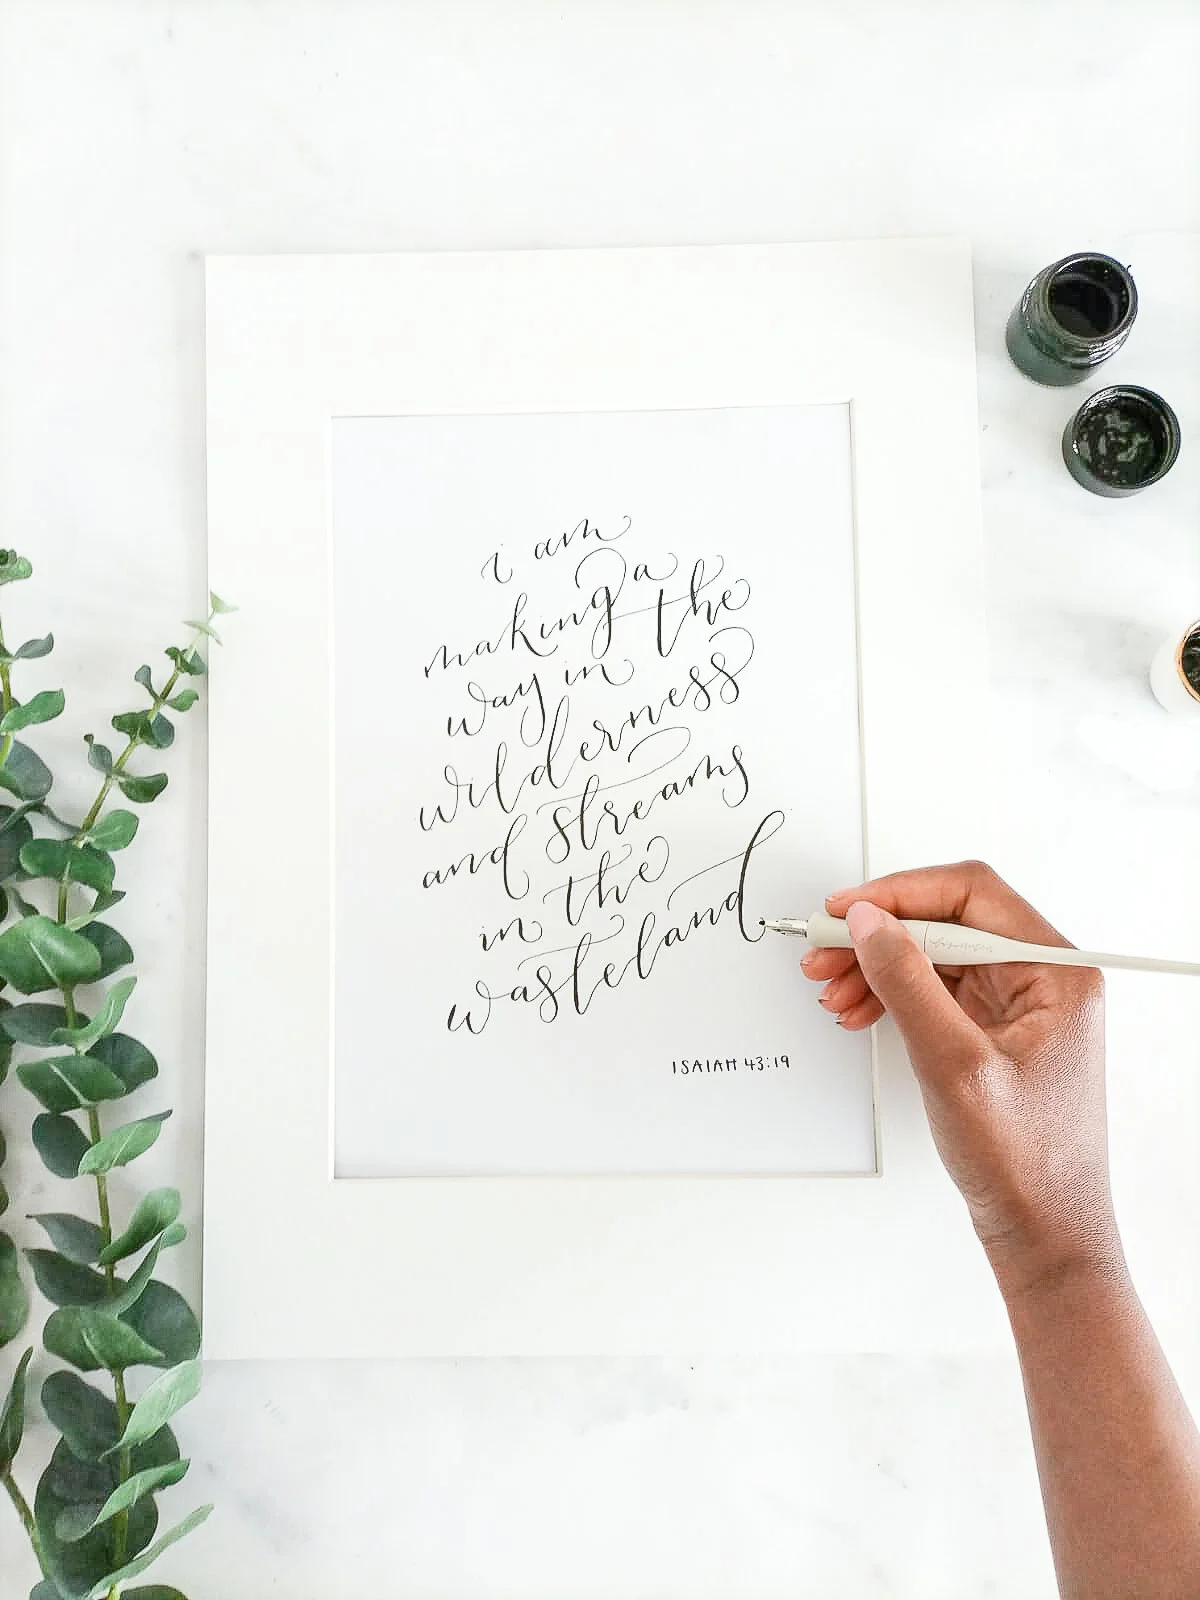 i am
making a
way in the
wilderness
and streams
in the
wasteland
ISAIAH 43:19